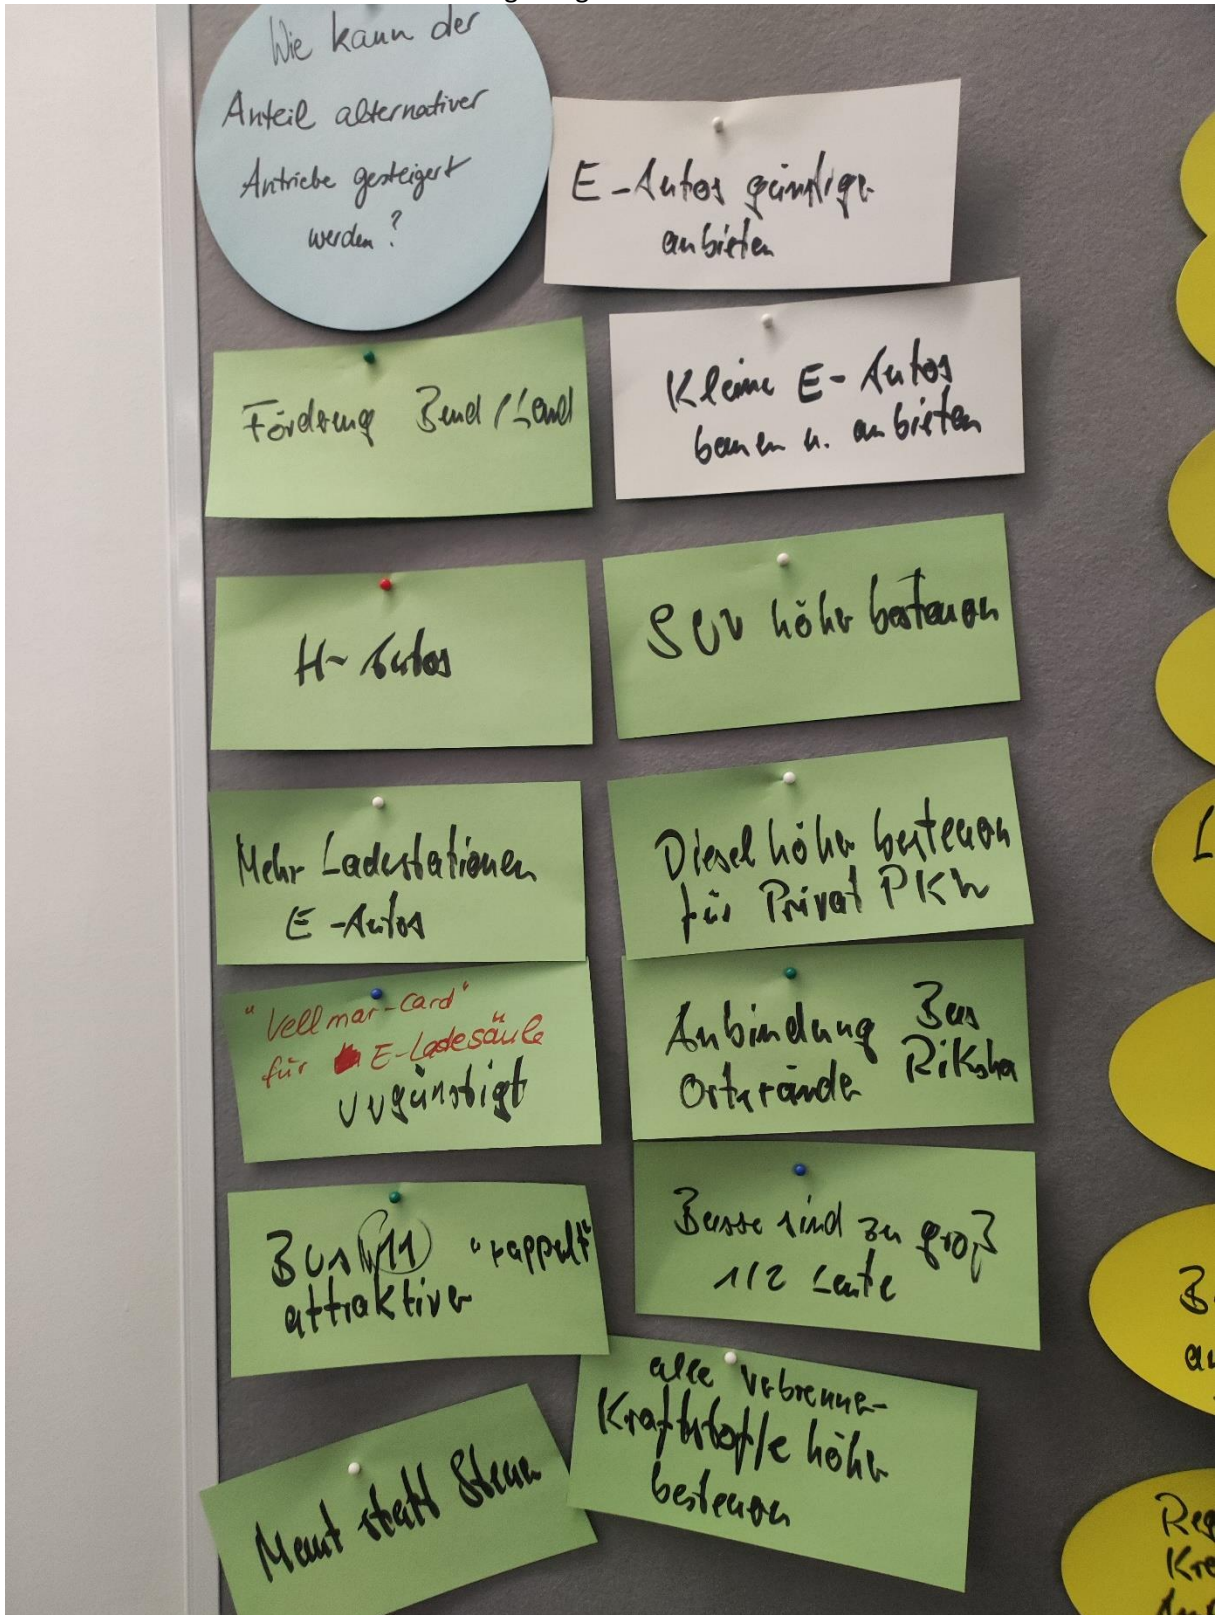 Wie kann der
Anteil alternativer
Antriebe gesteigert
werden?
E-Autos günstiger
anbieten
Förderung Bund/Land
Kleine E-Autos
bauen u. anbieten
H-Autos
SUV höher besteuern
Mehr Ladestationen
E-Autos
Diesel höher besteuern
für Privat PKW
"Vellmar-Card"
für E-Ladesäule
vergünstigt
Anbindung Bus
Ortsränder Riksha
Bus 11 "rappelt"
attraktiver
Busse sind zu groß
1/2 Leute
Maut statt Steuer
alle Verbrenner-
Kraftstoffe höher
besteuern
L
B
au
Reg
Kre